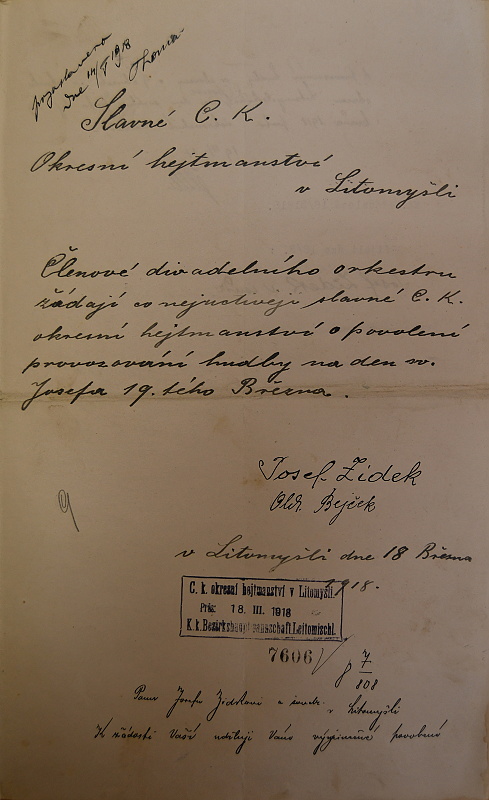 dne 14/V 1918
Slavné C. K.
Okresní hejtmanství
v Litomyšli
Členové divadelního orkestru
žádají co nejuctivěji slavné C. K.
okresní hejtmanství o povolení
provozování hudby na den sv.
Josefa 19. tého Března.
Josef Zídek
Old. Bejček
v Litomyšli dne 18 Března
1918.
C. k. okresní hejtmanství v Litomyšli.
Präs: 18. III. 1918
K. k. Bezirkshauptmannschaft Leitomischl.
7606
7
808
Panu Josefu Zídkovi a v Litomyšli
K žádosti Vaší uděluji Vám výjimečné povolení